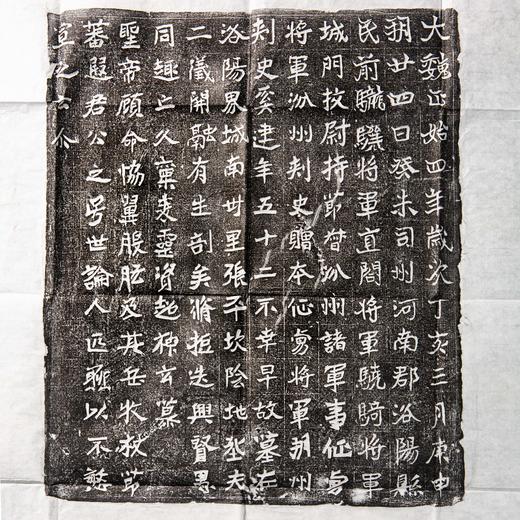 大魏正始四年歲次丁亥三月庚申
朔廿四日癸未司州河南郡洛陽縣
民前將軍直閤將軍驍騎將軍
城門校尉持節督汾州諸軍事征虜
將軍汾州刾史贈本征虜將軍朔州
刾史奚建年五十二不幸早故墓在
洛陽界城南卅里張平坎陰地夫
二儀開融有生剖矣脩拒迭興賢愚
同趣亡久稟靈資起玄慕
聖帝顧命協翼股肱及其岳牧救節
蕃遐君公之号世論人匹聯以不慙
宣之古今